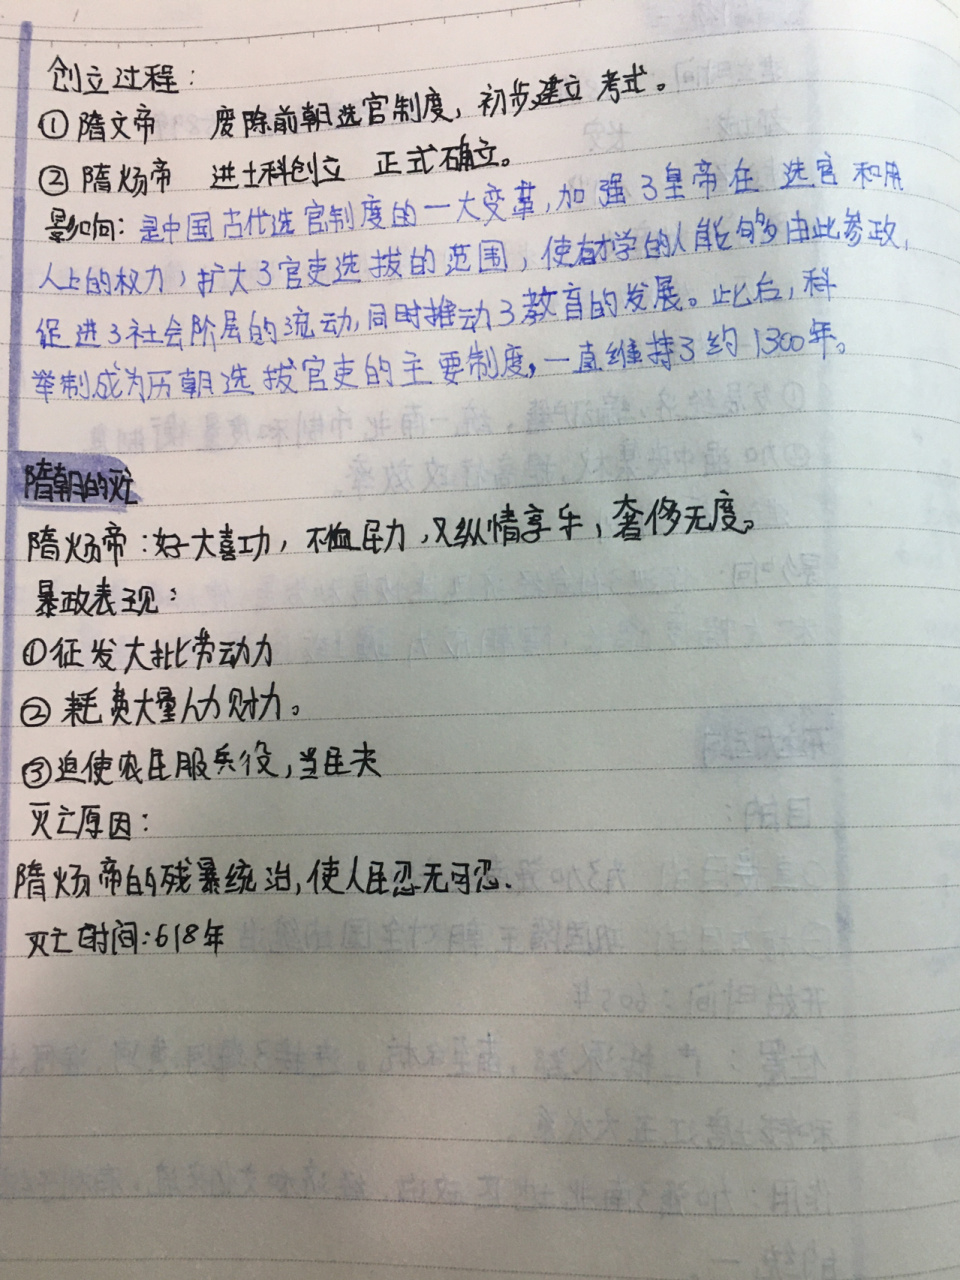 创立过程：
①隋文帝 废除前朝选官制度，初步建立考式。
②隋炀帝 进士科创立 正式确立。
影响：是中国古代选官制度的一大变革，加强了皇帝在选官和用
人上的权力，扩大了官吏选拔的范围，使有才学的人能够由此参政，
促进了社会阶层的流动，同时推动了教育的发展。此后，科
举制成为历朝选拔官吏的主要制度，一直维持了约1300年。
隋朝的灭亡
隋炀帝：好大喜功，不恤民力，又纵情享乐，奢侈无度。
暴政表现：
①征发大批劳动力
②耗费大量人力财力。
③迫使农民服兵役，当民夫
灭亡原因：
隋炀帝的残暴统治，使人民忍无可忍.
灭亡时间：618年